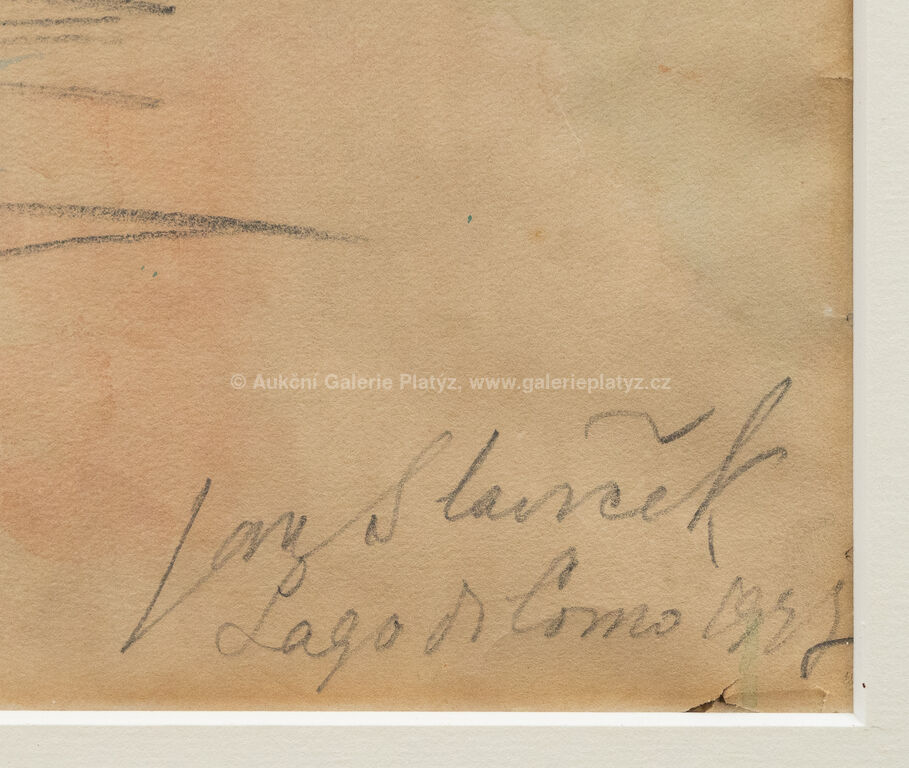 © Aukční Galerie Platýz, www.galerieplatyz.cz
Slavíček
Lago di Como